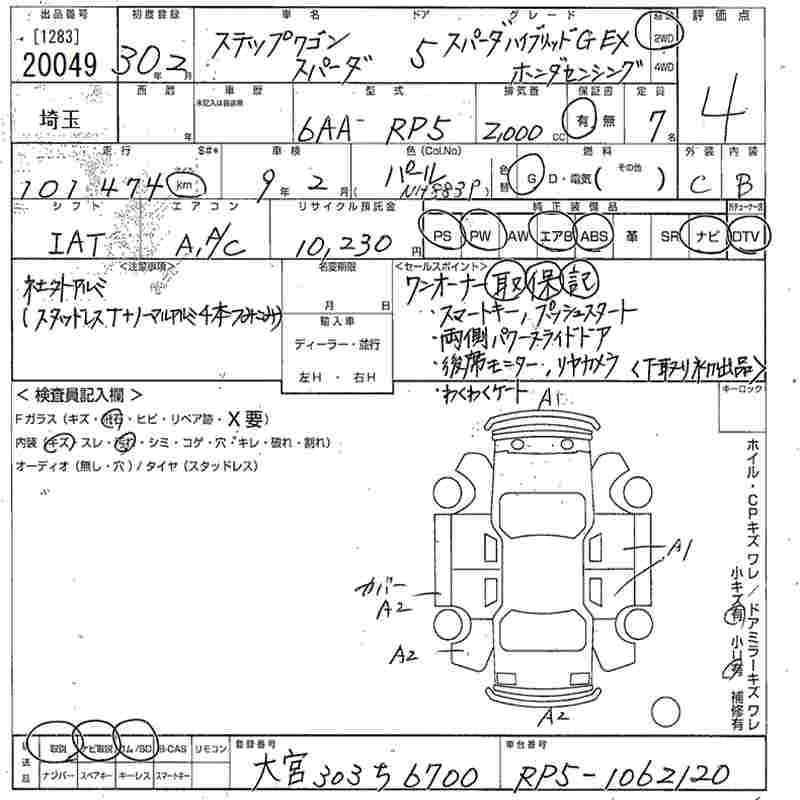 出品番号 初度登録 車名 ドア グレード 評価点
[1283]
20049 30年2月 ステップワゴン スパーダ 5 スパーダハイブリッドG EX ホンダセンシング 2WD 4WD 4
西暦 車歴 型式 排気量 保証書 定員
埼玉 年 未記入は自家用 6AA- RP5 2,000cc 有 無 7名
走行 S#* 車検 色(Col.No) 燃料 外装 内装
101,474 km 9年2月 パール (NH883P) 色替 G D・電気( その他 ) C B
シフト エアコン リサイクル預託金 純正装備品
IAT A,A/C 10,230円 PS PW AW エアB ABS 革 SR ナビ DTV
<注意事項> 名変期限 <セールスポイント>
社外アルミ
(スタッドレスT+ノーマルアルミ4本つみこみ)
月 日
輸入車
ディーラー・並行
左H ・ 右H
ワンオーナー 取 保 記
・スマートキー,プッシュスタート
・両側パワースライドドア
・後席モニター,リヤカメラ <下取り初出品>
・わくわくゲート
<検査員記入欄> キーロック
Fガラス(キズ・飛石・ヒビ・リペア跡・X要)
内装(キズ・スレ・汚れ・シミ・コゲ・穴・キレ・破れ・割れ)
オーディオ(無し・穴)/タイヤ(スタッドレス)
A1
A1
カバー
A2
A2
A2
ホイル・CPキズワレ/ドアミラーキズワレ
小キズ有 小U有 補修有
後送品 取説 ナビ取説 ロム/SD B-CAS リモコン
ナンバー スペアキー キーレス スマートキー
登録番号 車台番号
大宮 303 ち 6700 RP5-1062120